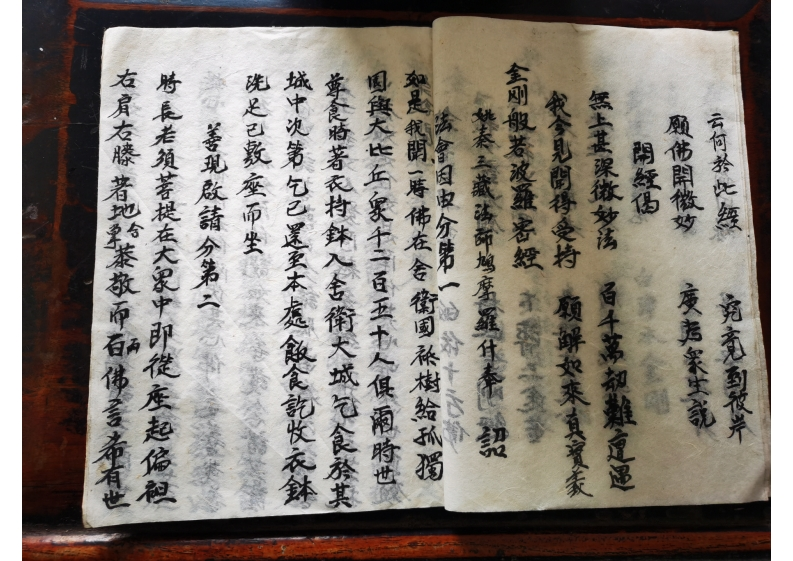 云何於此經 究竟到彼岸
願佛開微妙 廣為衆生說
開經偈
無上甚深微妙法 百千萬劫難遭遇
我今見聞得受持 願解如來真實義
金剛般若波羅密經
姚秦三藏法師鳩摩羅什奉 詔
法會因由分第一
如是我聞一時佛在舍衛國祇樹給孤獨
園與大比丘衆千二百五十人俱爾時世
尊食時著衣持鉢入舍衛大城乞食於其
城中次第乞已還至本處飯食訖收衣鉢
洗足已敷座而坐
善現啟請分第二
時長老須菩提在大衆中即從座起偏袒
右肩右膝著地合掌恭敬而白佛言希有世